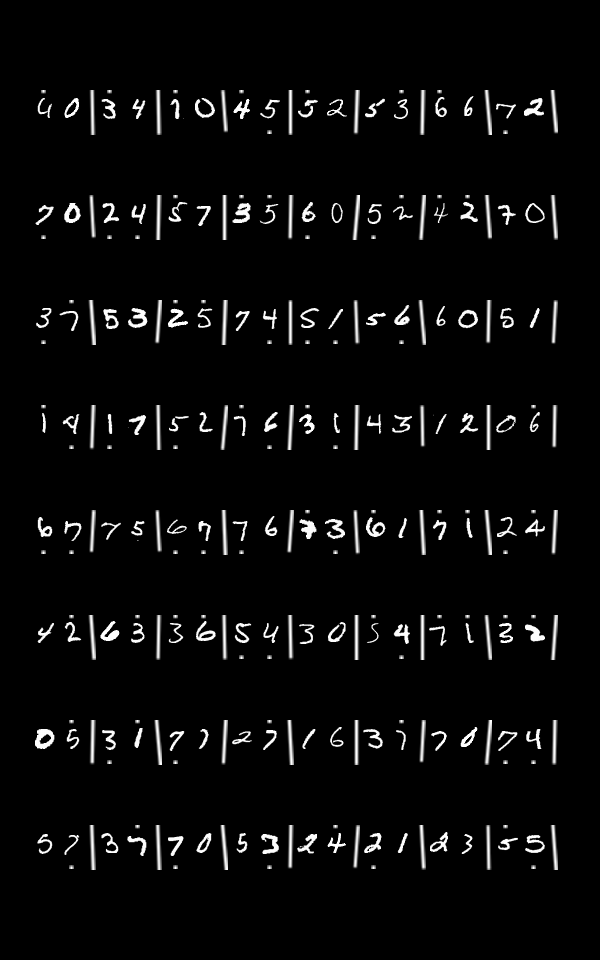 4̇ 0 | 3̇ 4 | 1̇ 0 | 4̇ 5̣ | 5̇ 2 | 5 3̇ | 6̇ 6 | 7̣ 2 |
7̣ 0 | 2̣ 4̣ | 5̇ 7 | 3̇ 5̇ | 6̣ 0 | 5̣ 2̇ | 4̇ 2̇ | 7 0 |
3̣ 7̇ | 5 3 | 2̇ 5̇ | 7 4̣ | 5̣ 1̣ | 5 6̣ | 6 0 | 5̣ 1 |
1̇ 4̣ | 1̣ 7 | 5̣ 2 | 7̇ 6̣ | 3̇ 1̣ | 4 3 | 1 2 | 0 6̇ |
6̣ 7̣ | 7 5 | 6̣ 7̣ | 7̣ 6 | 7̇ 3̣ | 6̇ 1 | 7̇ 1̇ | 2̣ 4̇ |
4 2̇ | 6 3̇ | 3̇ 6̇ | 5̣ 4̣ | 3 0 | 5̇ 4̣ | 7̇ 1̇ | 3̇ 2̇ |
0 5̇ | 3̣ 1̇ | 7̣ 7 | 2 7̇ | 1 6 | 3 7̇ | 7 0 | 7̣ 4̣ |
5 7̣ | 3 7̇ | 7̣ 0 | 5 3̣ | 2 4̇ | 2̣ 1 | 2 3 | 5̇ 5̣ |